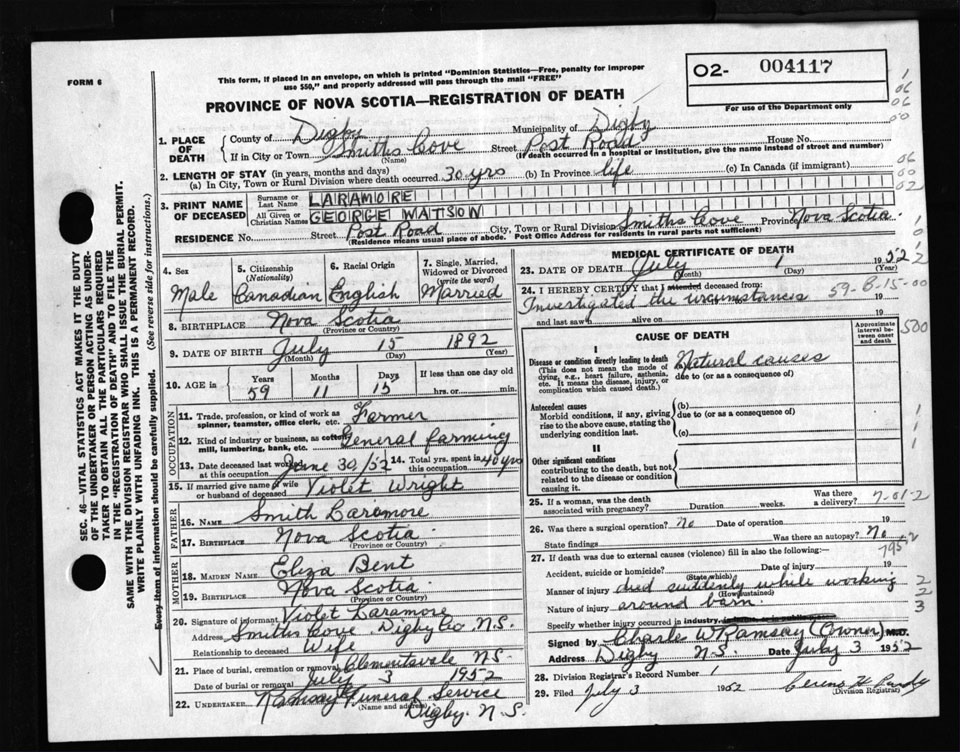 FORM 6
This form, if placed in an envelope, on which is printed "Dominion Statistics—Free, penalty for improper
use $50," and properly addressed will pass through the mail "FREE"
PROVINCE OF NOVA SCOTIA—REGISTRATION OF DEATH
02- 004117
For use of the Department only
1. PLACE OF DEATH
County of Digby Municipality of Digby
If in City or Town Smiths Cove Street Post Road House No.
(Name) (If death occurred in a hospital or institution, give the name instead of street and number)
2. LENGTH OF STAY (in years, months and days)
(a) In City, Town or Rural Division where death occurred 30 yrs (b) In Province life (c) In Canada (if immigrant)
3. PRINT NAME OF DECEASED
Surname or Last Name LARAMORE
All Given or Christian Names GEORGE WATSON
RESIDENCE No. Street Post Road City, Town or Rural Division Smiths Cove Province Nova Scotia
(Residence means usual place of abode. Post Office Address for residents in rural parts not sufficient)
4. Sex
Male
5. Citizenship (Nationality)
Canadian
6. Racial Origin
English
7. Single, Married, Widowed or Divorced (write the word)
Married
8. BIRTHPLACE Nova Scotia
(Province or Country)
9. DATE OF BIRTH July 15 1892
(Month) (Day) (Year)
10. AGE in Years Months Days If less than one day old
59 11 15 hrs. or min.
OCCUPATION
11. Trade, profession, or kind of work as
spinner, teamster, office clerk, etc. Farmer
12. Kind of industry or business, as cotton
mill, lumbering, bank, etc. General farming
13. Date deceased last worked at this occupation June 30/52 14. Total yrs. spent in this occupation 40 yrs
15. If married give name of wife
or husband of deceased Violet Wright
FATHER
16. NAME Smith Laramore
17. BIRTHPLACE Nova Scotia
(Province or Country)
MOTHER
18. MAIDEN NAME Eliza Bent
19. BIRTHPLACE Nova Scotia
(Province or Country)
20. Signature of informant Violet Laramore
Address Smiths Cove, Digby Co N.S.
Relationship to deceased Wife
21. Place of burial, cremation or removal Clementsvale N.S.
Date of burial or removal July 3 1952
22. UNDERTAKER Ramsay Funeral Service
(Name and address) Digby. N.S.
MEDICAL CERTIFICATE OF DEATH
23. DATE OF DEATH July 1 1952
(Month) (Day) (Year)
24. I HEREBY CERTIFY that I attended deceased from:
Investigated the circumstances 59-6-15-00
and last saw h alive on 19
CAUSE OF DEATH
Approximate interval between onset and death
I
Disease or condition directly leading to death
(This does not mean the mode of
dying, e.g., heart failure, asthenia,
etc. It means the disease, injury, or
complication which caused death.)
Natural causes
due to (or as a consequence of)
Antecedent causes
Morbid conditions, if any, giving
rise to the above cause, stating the
underlying condition last.
(b)
due to (or as a consequence of)
(c)
II
Other significant conditions
contributing to the death, but not
related to the disease or condition
causing it.
25. If a woman, was the death
associated with pregnancy? Duration weeks. Was there a delivery?
26. Was there a surgical operation? No Date of operation 19
State findings Was there an autopsy? No
27. If death was due to external causes (violence) fill in also the following:
Accident, suicide or homicide? Date of injury 19
(State which)
Manner of injury died suddenly while working
(How sustained)
Nature of injury around barn.
Specify whether injury occurred in industry, in home, or in public place
Signed by Charle W Ramsay (Owner) M.D.
Address Digby N.S. Date July 3 1952
28. Division Registrar's Record Number 1
29. Filed July 3 1952
(Division Registrar)
SEC. 46—VITAL STATISTICS ACT MAKES IT THE DUTY
OF THE UNDERTAKER OR PERSON ACTING AS UNDER-
TAKER TO OBTAIN ALL THE PARTICULARS REQUIRED
IN THE "REGISTRATION OF DEATH" AND TO FILE THE
SAME WITH THE DIVISION REGISTRAR WHO SHALL ISSUE THE BURIAL PERMIT.
WRITE PLAINLY WITH UNFADING INK. THIS IS A PERMANENT RECORD.
Every item of information should be carefully supplied. (See reverse side for instructions.)